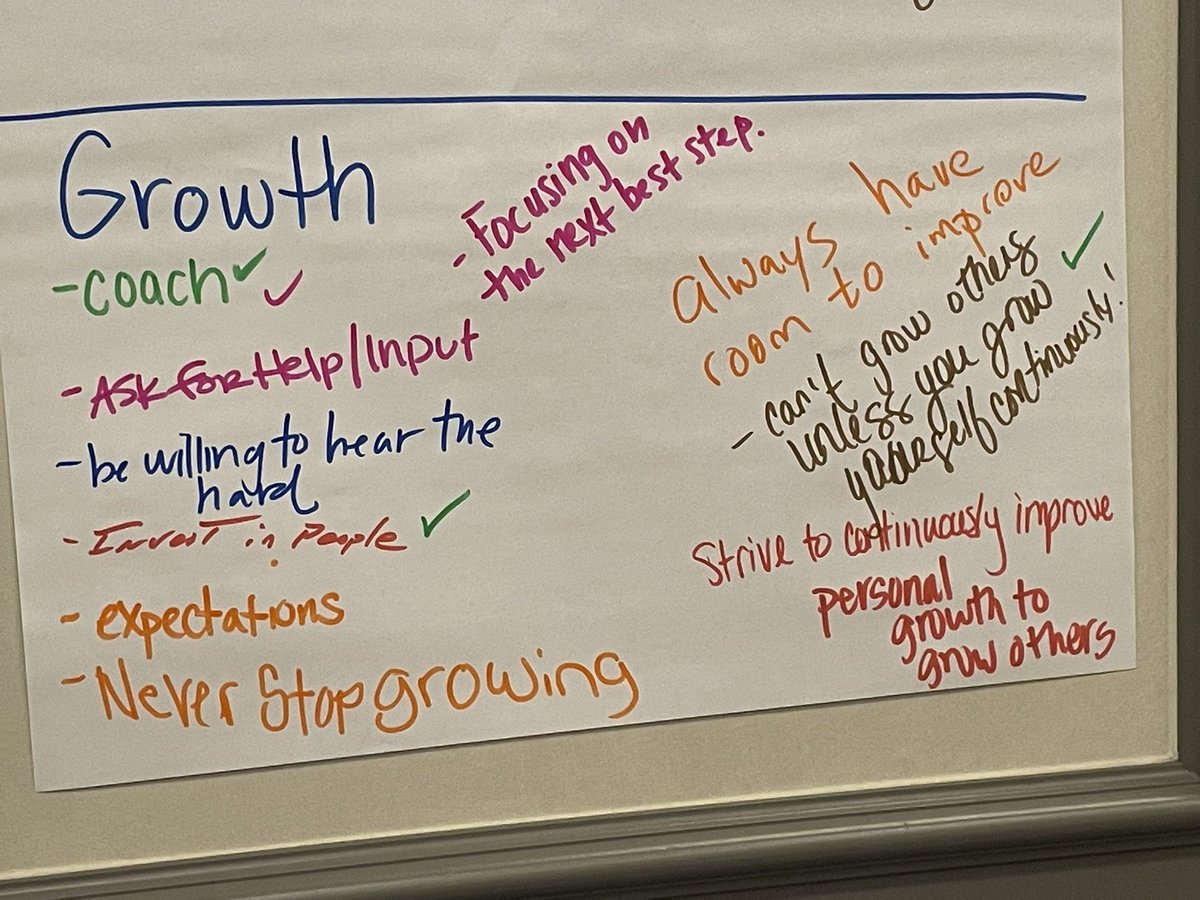 Growth
- coach ✓ ✓
- Ask for Help/Input
- be willing to hear the
hard
- Invest in People ✓
- expectations
- Never Stop growing
- Focusing on
the next best step.
always have
room to improve
- can't grow others ✓
unless you grow
yourself continuously!
Strive to continuously improve
personal
growth to
grow others